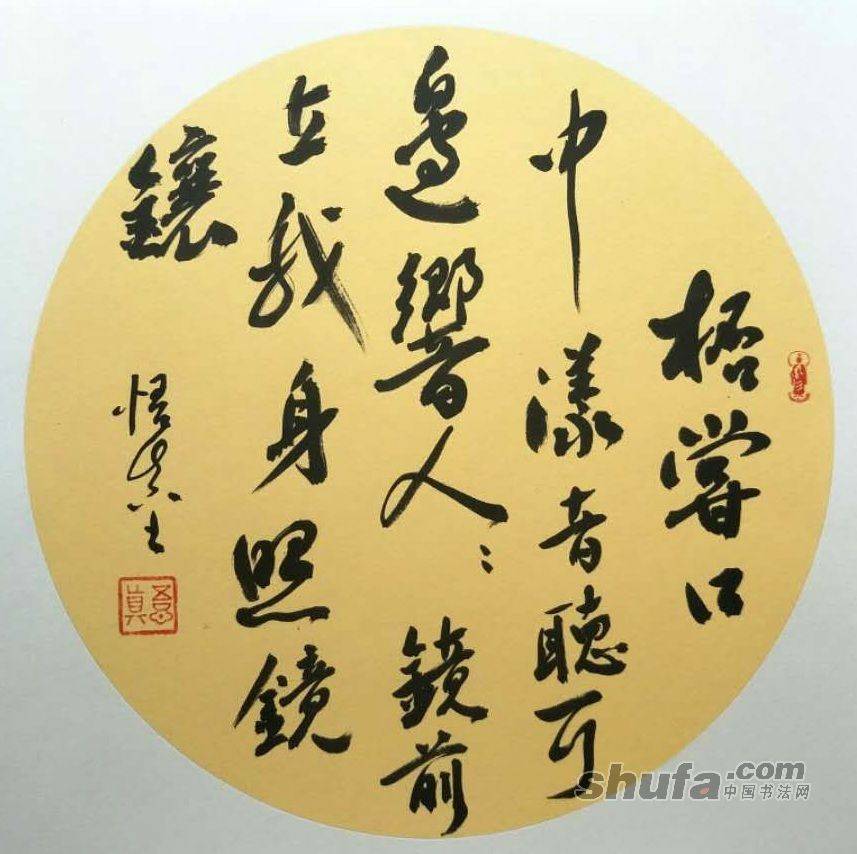 嘗口
中漾音聽可
邊響人人鏡前
立我身照鏡
鑲
悟真
shufa.com
中国书法网